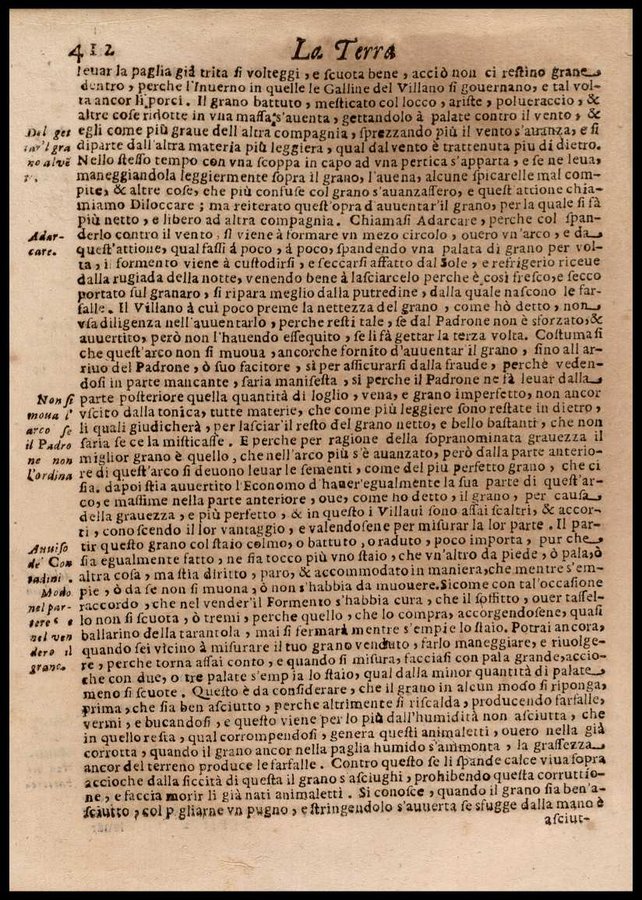 412
La Terra
leuar la paglia già trita si volteggi, e scuota bene, acciò non ci restino grane
dentro, perche l'Inuerno in quelle le Galline del Villano si gouernano, e tal vol-
ta ancor li porci. Il grano battuto, mesticato col locco, ariste, polueraccio, &
altre cose ridotte in vna massa, s'auenta, gettandolo à palate contro il vento, &
egli come più graue dell altra compagnia, sprezzando più il vento s'auranza, e si
diparte dall'altra materia più leggiera, qual dal vento è trattenuta piu di dietro.
Nello stesso tempo con vna scoppa in capo ad vna pertica s'apparta, e se ne leua,
maneggiandola leggiermente sopra il grano, l'auena, alcune spicarelle mal com-
pite, & altre cose, che più confuse col grano s'auanzassero, e quest attione chia-
miamo Diloccare; ma reiterato quest'opra d'auuentar'il grano, per la quale si fà
più netto, e libero ad altra compagnia. Chiamasi Adarcare, perche col span-
derlo contro il vento, si viene à formare vn mezo circolo, ouero vn'arco, e da
quest'attione, qual fassi á poco, á poco, spandendo vna palata di grano per vol-
ta, il formento viene à custodirsi, e seccarsi affatto dal Sole, e refrigerio riceue
dalla rugiada della notte, venendo bene à lasciarcelo perche è così fresco, e secco
portato sul granaro, si ripara meglio dalla putredine, dalla quale nascono le far-
falle. Il Villano à cui poco preme la nettezza del grano, come hò detto, non
vsa diligenza nell'auuentarlo, perche resti tale, se dal Padrone non è sforzato, &
auuertito, però non l'hauendo essequito, se li fà gettar la terza volta. Costumasi
che quest'arco non si muoua, ancorche fornito d'auuentar il grano, sino all ar-
riuo del Padrone, ò suo facitore, si per assicurarsi dalla fraude, perche veden-
dosi in parte mancante, saria manifesta, si perche il Padrone ne fà leuar dalla
parte posteriore quella quantità di loglio, vena, e grano imperfetto, non ancor
vscito dalla tonica, tutte materie, che come più leggiere sono restate in dietro,
li quali giudicherà, per lasciar'il resto del grano netto, e bello bastanti, che non
saria se ce la misticasse. E perche per ragione della sopranominata grauezza il
miglior grano è quello, che nell'arco più s'è auanzato, però dalla parte anterio-
re di quest'arco si deuono leuar le sementi, come del piu perfetto grano, che ci
sia. dapoi stia auuertito l'Economo d'hauer'egualmente la sua parte di quest'ar-
co, e massime nella parte anteriore, oue, come ho detto, il grano, per causa
della grauezza, e più perfetto, & in questo i Villani sono assai scaltri, & accor-
ti, conoscendo il lor vantaggio, e valendosene per misurar la lor parte. Il par-
tir questo grano col staio colmo, o battuto, o raduto, poco importa, pur che
sia egualmente fatto, ne sia tocco più vno staio, che vn'altro da piede, ò pala, ò
altra cosa, ma stia diritto, paro, & accommodato in maniera, che mentre s'em-
pie, ò da se non si muona, ò non s'habbia da muouere. Sicome con tal'occasione
raccordo, che nel vender'il Formento s'habbia cura, che il soffitto, ouer tassel-
lo non si scuota, ò tremi, perche quello, che lo compra, accorgendosene, quasi
ballarino della tarantola, mai si fermarà mentre s'empie lo staio. Potrai ancora,
quando sei vicino à misurare il tuo grano venduto, farlo maneggiare, e riuolge-
re, perche torna assai conto, e quando si misura, facciasi con pala grande, accio-
che con due, o tre palate s'empia lo staio, qual dalla minor quantità di palate
meno si scuote. Questo è da considerare, che il grano in alcun modo si riponga,
prima, che sia ben asciutto, perche altrimente si riscalda, producendo farfalle,
vermi, e bucandosi, e questo viene per lo più dall'humidità non asciutta, che
in quello resta, qual corrompendosi, genera questi animaletti, ouero nella già
corrotta, quando il grano ancor nella paglia humido s'ammonta, la grassezza
ancor del terreno produce le farfalle. Contro questo se li spande calce viua sopra
accioche dalla siccità di questa il grano s'asciughi, prohibendo questa corruttio-
ne, e faccia morir li già nati animaletti. Si conosce, quando il grano sia ben'a-
sciutto, col pigliarne vn pugno, e stringendolo s'auuerta se sfugge dalla mano è
asciut-
Del get
tar'l gra
no al vē
Adar-
care.
Non si
moua l'
arco se
il Padro
ne non
l'ordina
Auuiso
de' Con
tadini.
Modo
nel par-
tere e
nel ven
dero il
grano.